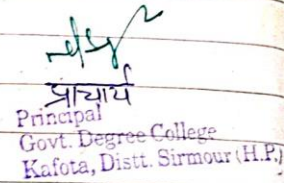 प्राचार्य
Principal
Govt. Degree College
Kafota, Distt. Sirmour (H.P.)